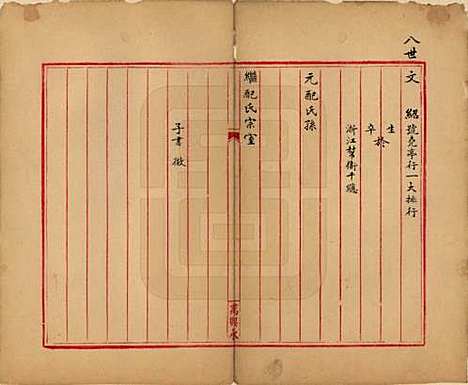 八世文 紹號堯亭行一大排行
生
卒於
浙江督衛千總
元配氏孫
繼配氏宗室
萬興永
子書徵